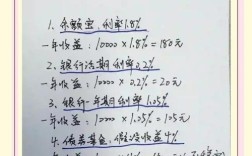 1. 余额宝,利率1.8%
一年收益:10000×1.8%=180元
2. 银行活期利率0.2%
一年收益:10000×0.2%=20元
3. 银行一年期利率1.05%
一年收益:10000×1.05%=105元
4. 债券基金,假设收益4%